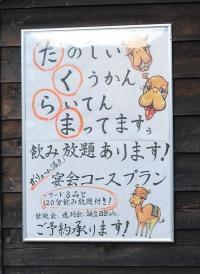 たのしい
くうかん
らいてん
まってますぅ
飲み放題あります!
ボリューム満点
宴会コースプラン
フード8品と
120分飲み放題付き!
歓迎会、送別会、誕生日会etc.
ご予約承ります!